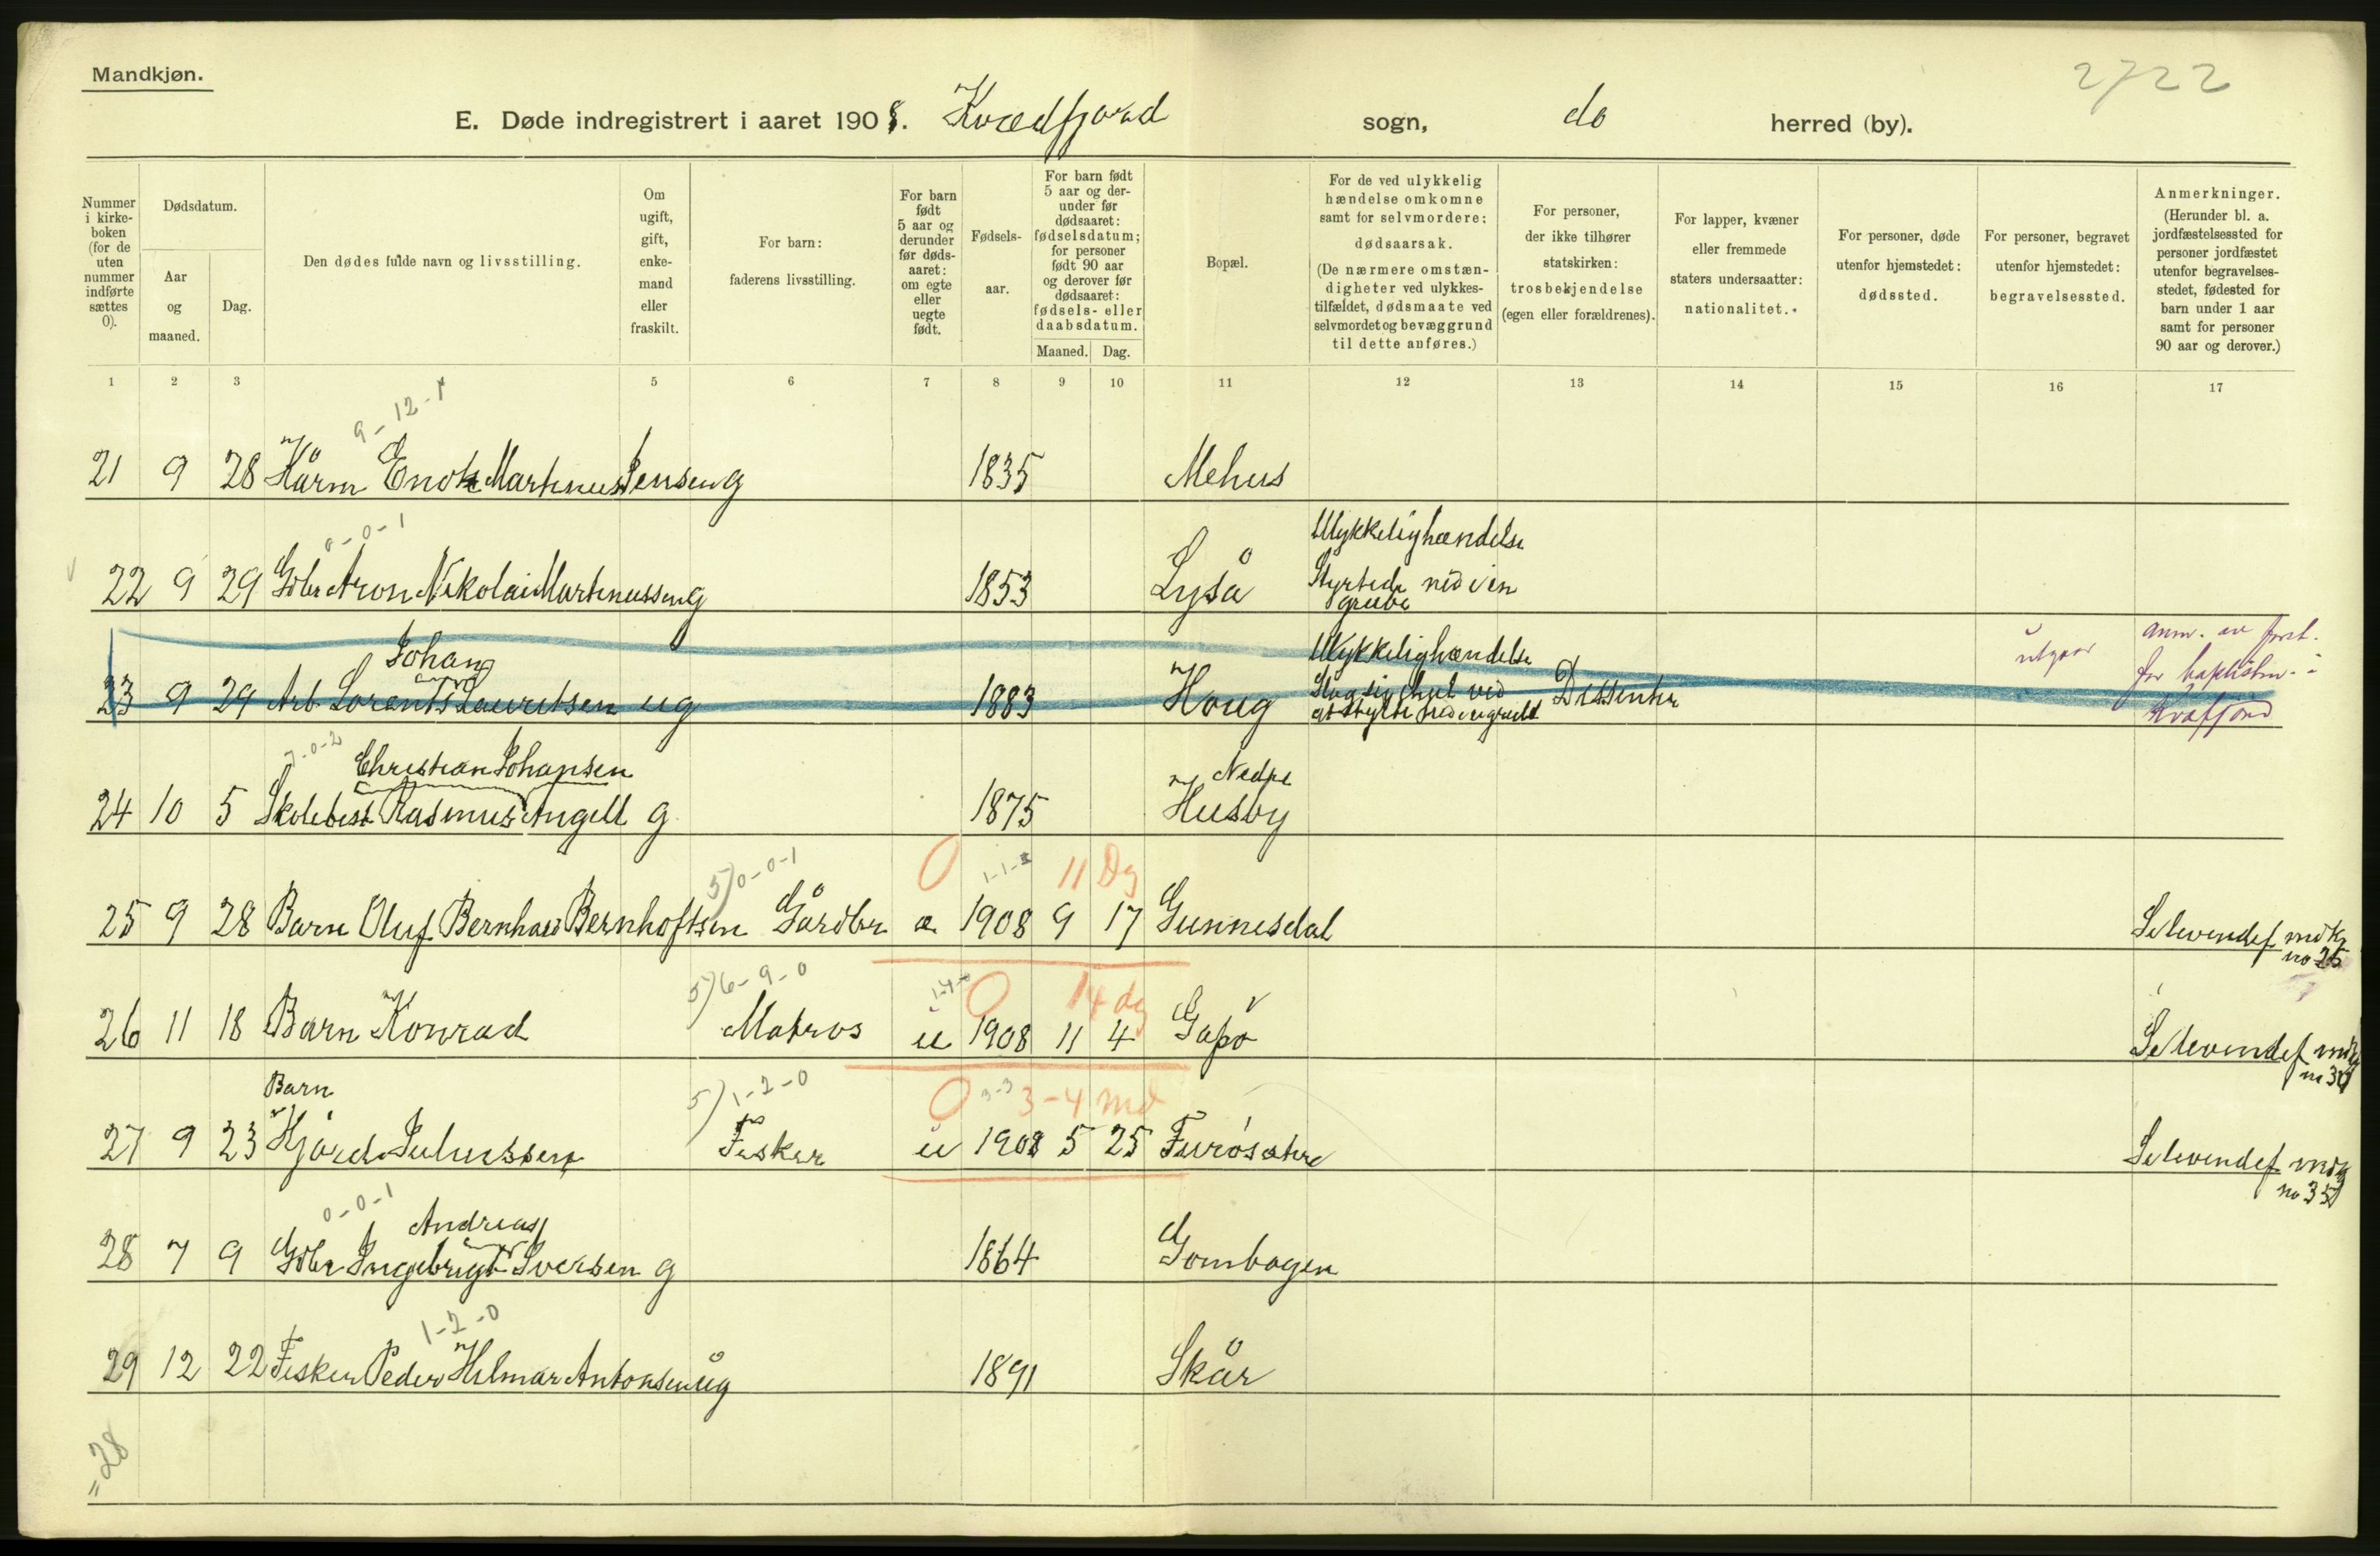 Mandkjøn.
2722
E. Døde indregistrert i aaret 1908. Kvædfjord sogn, do herred (by).
Nummer i kirke-boken (for de uten nummer indførte sættes 0).
Dødsdatum.
Aar og maaned.
Dag.
Den dødes fulde navn og livsstilling.
Om ugift, gift, enke-mand eller fraskilt.
For barn: faderens livsstilling.
For barn født 5 aar og derunder før døds-aaret: om egte eller uegte født.
Fødsels-aar.
For barn født 5 aar og der-under før dødsaaret: fødselsdatum; for personer født 90 aar og derover før dødsaaret: fødsels- eller daabsdatum.
Maaned. Dag.
Bopæl.
For de ved ulykkelig hændelse omkomne samt for selvmordere: dødsaarsak. (De nærmere omstæn-digheter ved ulykkes-tilfældet, dødsmaate ved selvmordet og bevæggrund til dette anføres.)
For personer, der ikke tilhører statskirken: trosbekjendelse (egen eller forældrenes).
For lapper, kvæner eller fremmede staters undersaatter: nationalitet.
For personer, døde utenfor hjemstedet: dødssted.
For personer, begravet utenfor hjemstedet: begravelsessted.
Anmerkninger. (Herunder bl. a. jordfæstelsessted for personer jordfæstet utenfor begravelses-stedet, fødested for barn under 1 aar samt for personer 90 aar og derover.)
1 2 3 5 6 7 8 9 10 11 12 13 14 15 16 17
9-12-1
21 9 28 Kårm Enok Martinus Jensen g 1835 Mehus
0-0-1
Ulykkelig hændelse
22 9 29 Gbr Aron Nikolai Martinussen g 1853 Lyså Styrtede ned i en
grube
Johan
Ulykkelig hændelse
utgaar
anm. av forst.
for baptistm. i
23 9 29 Arb. Lorents Lauritsen ug 1883 Houg Slog sig ihjel ved Dissenter
Kvæfjord
7-0-2
Christian Johansen
Nedre
24 10 5 Skolebest. Rasmus Angell g 1875 Husby
5) 0-0-1
0 1-1- 11 Dg
25 9 28 Barn Oluf Bernhard Bernhoftsen Gårdbr æ 1908 9 17 Gunnesdal Se levendef mdk
no 25
5) 6-9-0
0 14 dg
26 11 18 Barn Konrad Matros u 1908 11 4 Gapø Se levendef mdk
no 30
Barn
5) 1-2-0
0 3-3 3-4 md
27 9 23 Hjård Juliussen Fisker u 1908 5 25 Furøsætre Se levendef mdk
no 35
0-0-1
Andreas
28 7 9 Gbr Ingebrigt Iversen g 1864 Gombogen
1-2-0
29 12 22 Fisker Peder Hilmar Antonsen ug 1891 Skår
= 28